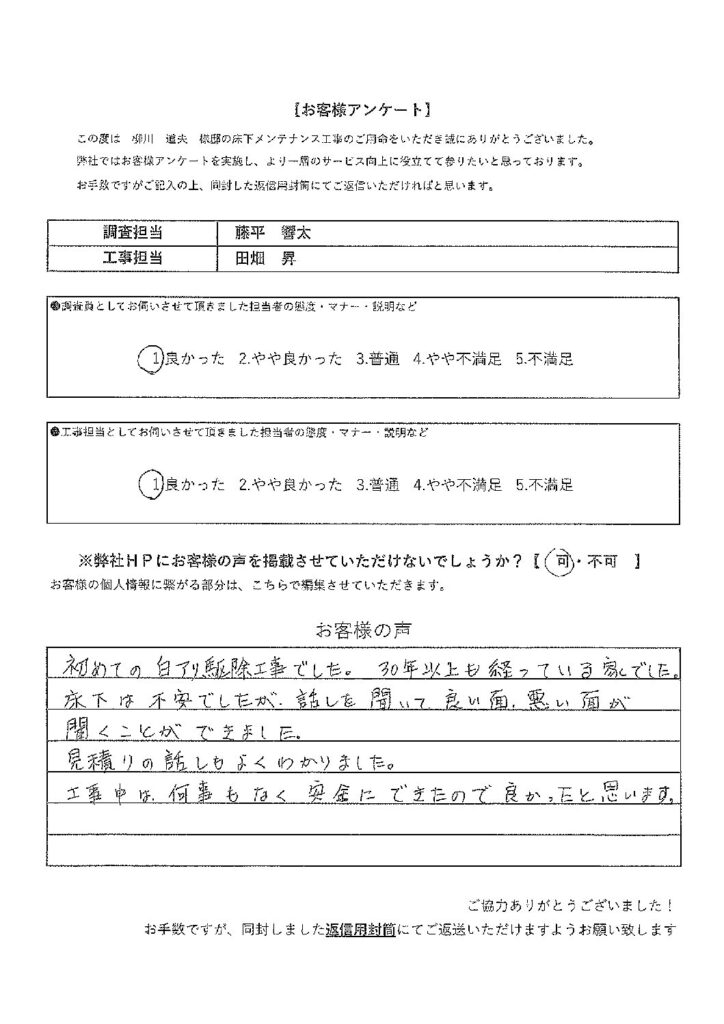 【お客様アンケート】
この度は　柳川　道央　様邸の床下メンテナンス工事のご用命をいただき誠にありがとうございました。
弊社ではお客様アンケートを実施し、より一層のサービス向上に役立てて参りたいと思っております。
お手数ですがご記入の上、同封した返信用封筒にてご返信いただければと思います。
調査担当　藤平　響太
工事担当　田畑　昇
●調査員としてお伺いさせて頂きました担当者の態度・マナー・説明など
1良かった　2.やや良かった　3.普通　4.やや不満足　5.不満足
●工事担当としてお伺いさせて頂きました担当者の態度・マナー・説明など
1良かった　2.やや良かった　3.普通　4.やや不満足　5.不満足
※弊社ＨＰにお客様の声を掲載させていただけないでしょうか？【　可・不可　】
お客様の個人情報に繋がる部分は、こちらで編集させていただきます。
お客様の声
初めての白アリ駆除工事でした。30年以上も経っている家でした。
床下は不安でしたが、話しを聞いて良い面、悪い面が
聞くことができました。
見積りの話しもよくわかりました。
工事中は、何事もなく安全にできたので良かったと思います。
ご協力ありがとうございました！
お手数ですが、同封しました返信用封筒にてご返送いただけますようお願い致します